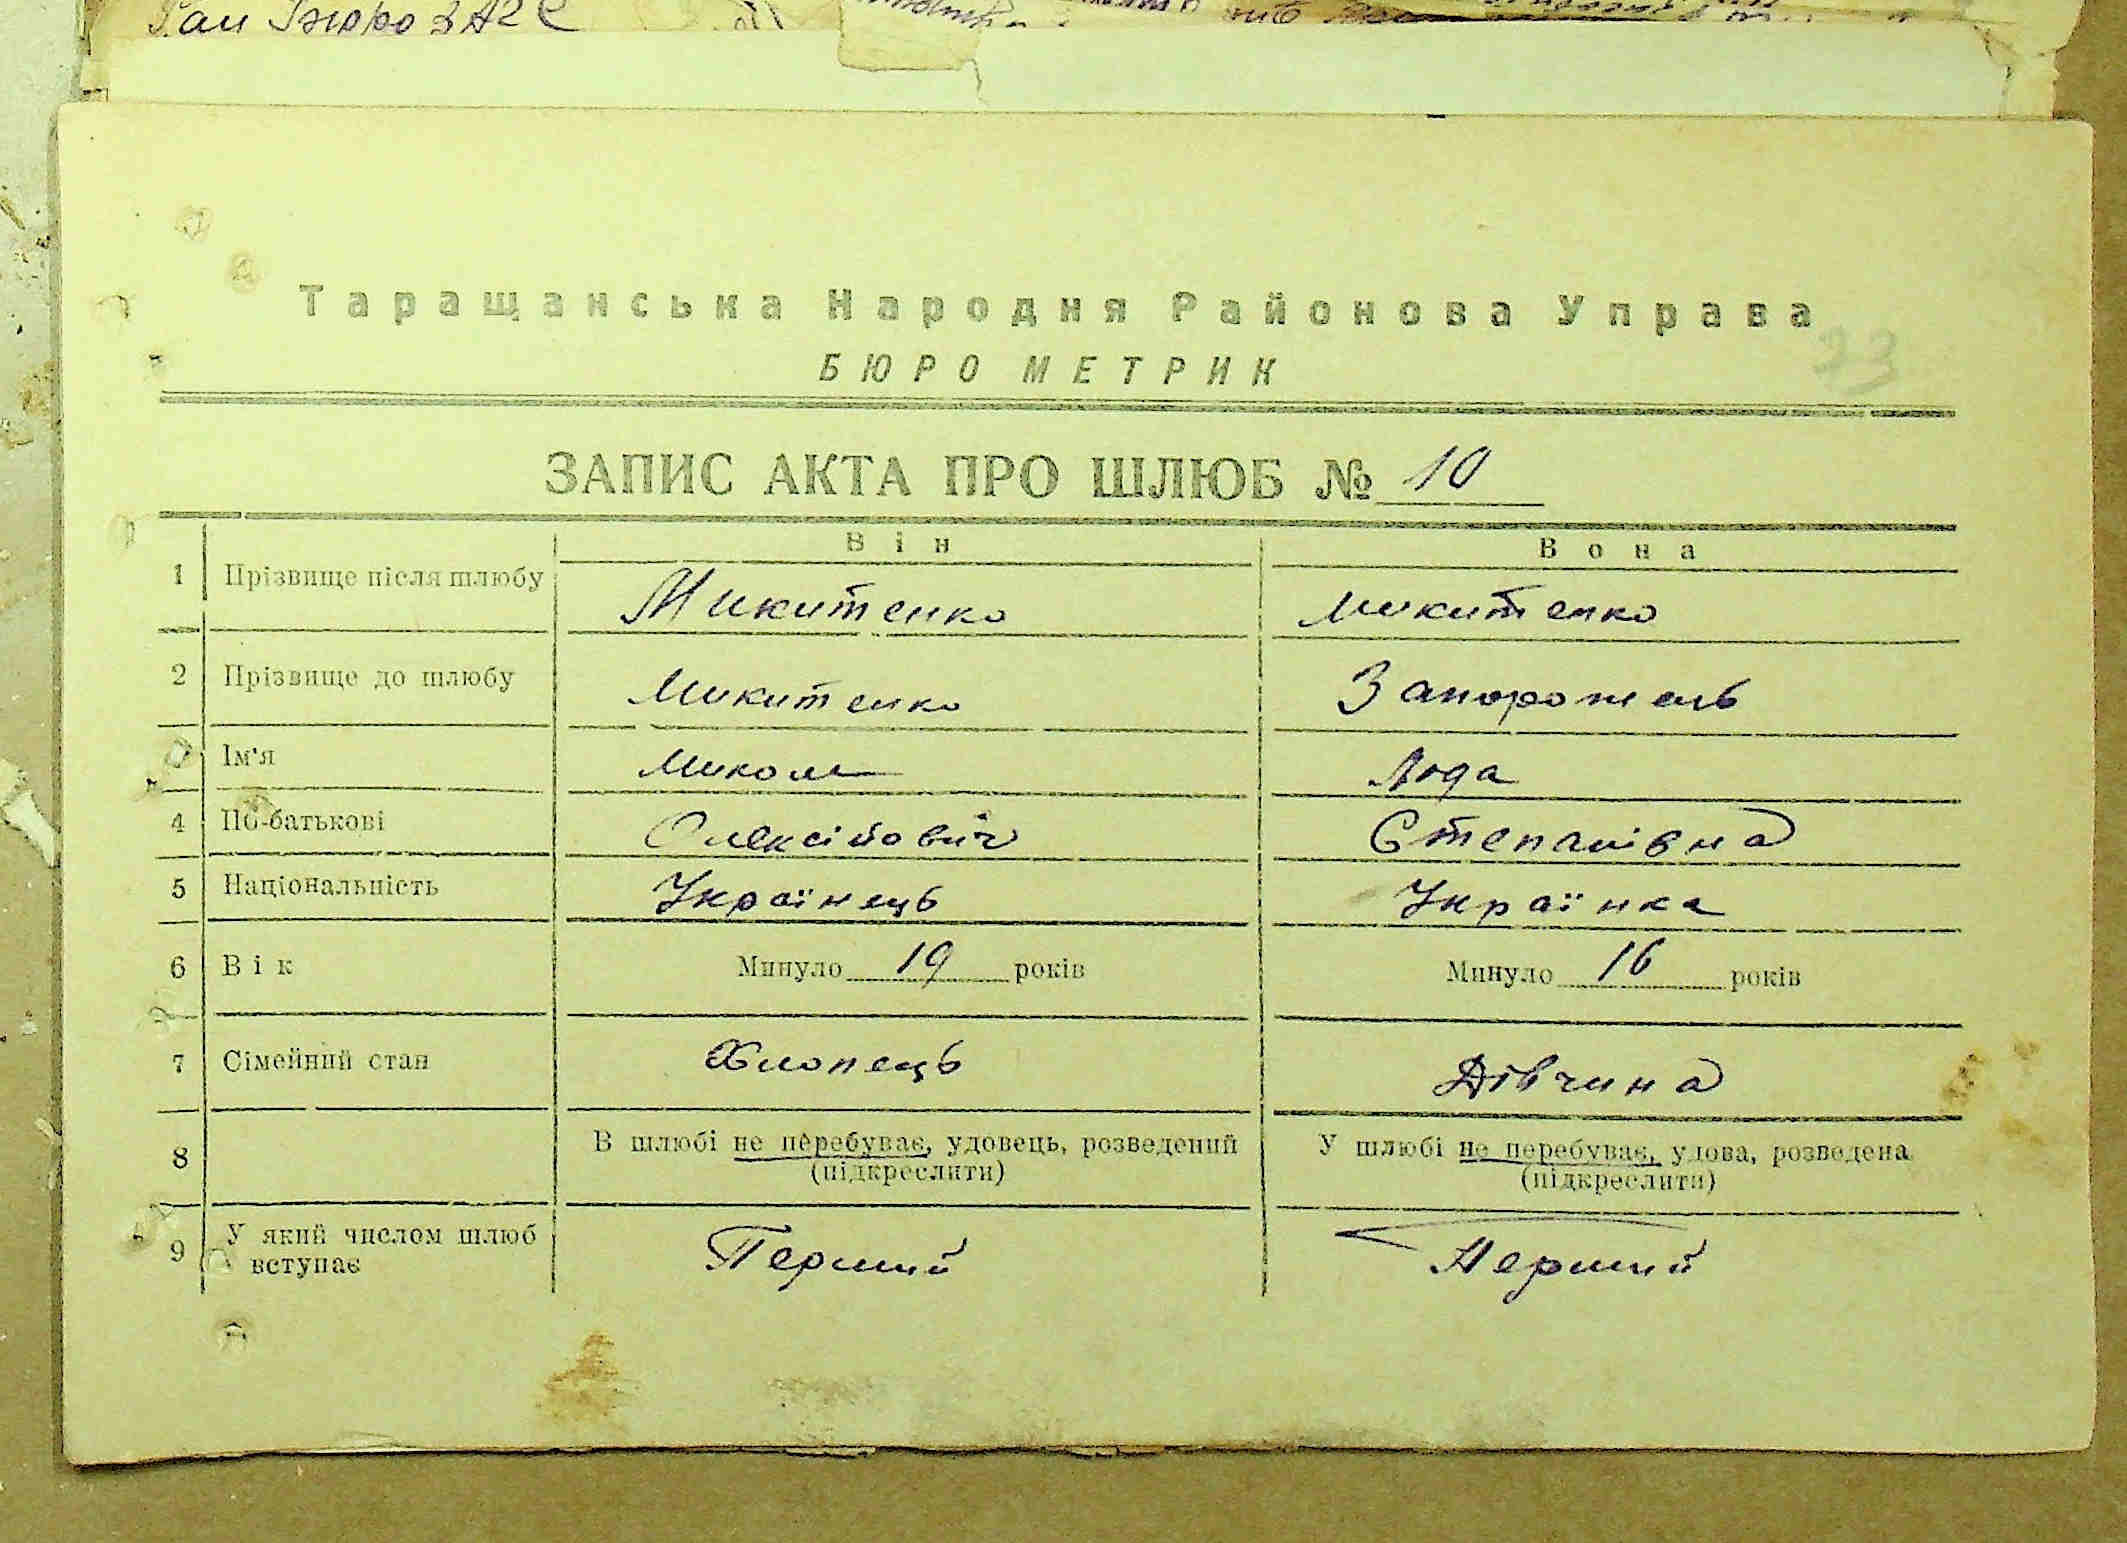 Рай Бюро ЗАГС
Таращанська Народня Районова Управа
БЮРО МЕТРИК
23
ЗАПИС АКТА ПРО ШЛЮБ № 10
Він Вона
1 Прізвище після шлюбу Микитенко Микитенко
2 Прізвище до шлюбу Микитенко Запорожець
Ім'я Микола Люда
4 По-батькові Олексійович Степанівна
5 Національність Українець Українка
6 Вік Минуло 19 років Минуло 16 років
7 Сімейний стан Хлопець Дівчина
8 В шлюбі не перебуває, удовець, розведений У шлюбі не перебуває, удова, розведена
(підкреслити) (підкреслити)
9 У який числом шлюб Перший Перший
вступає